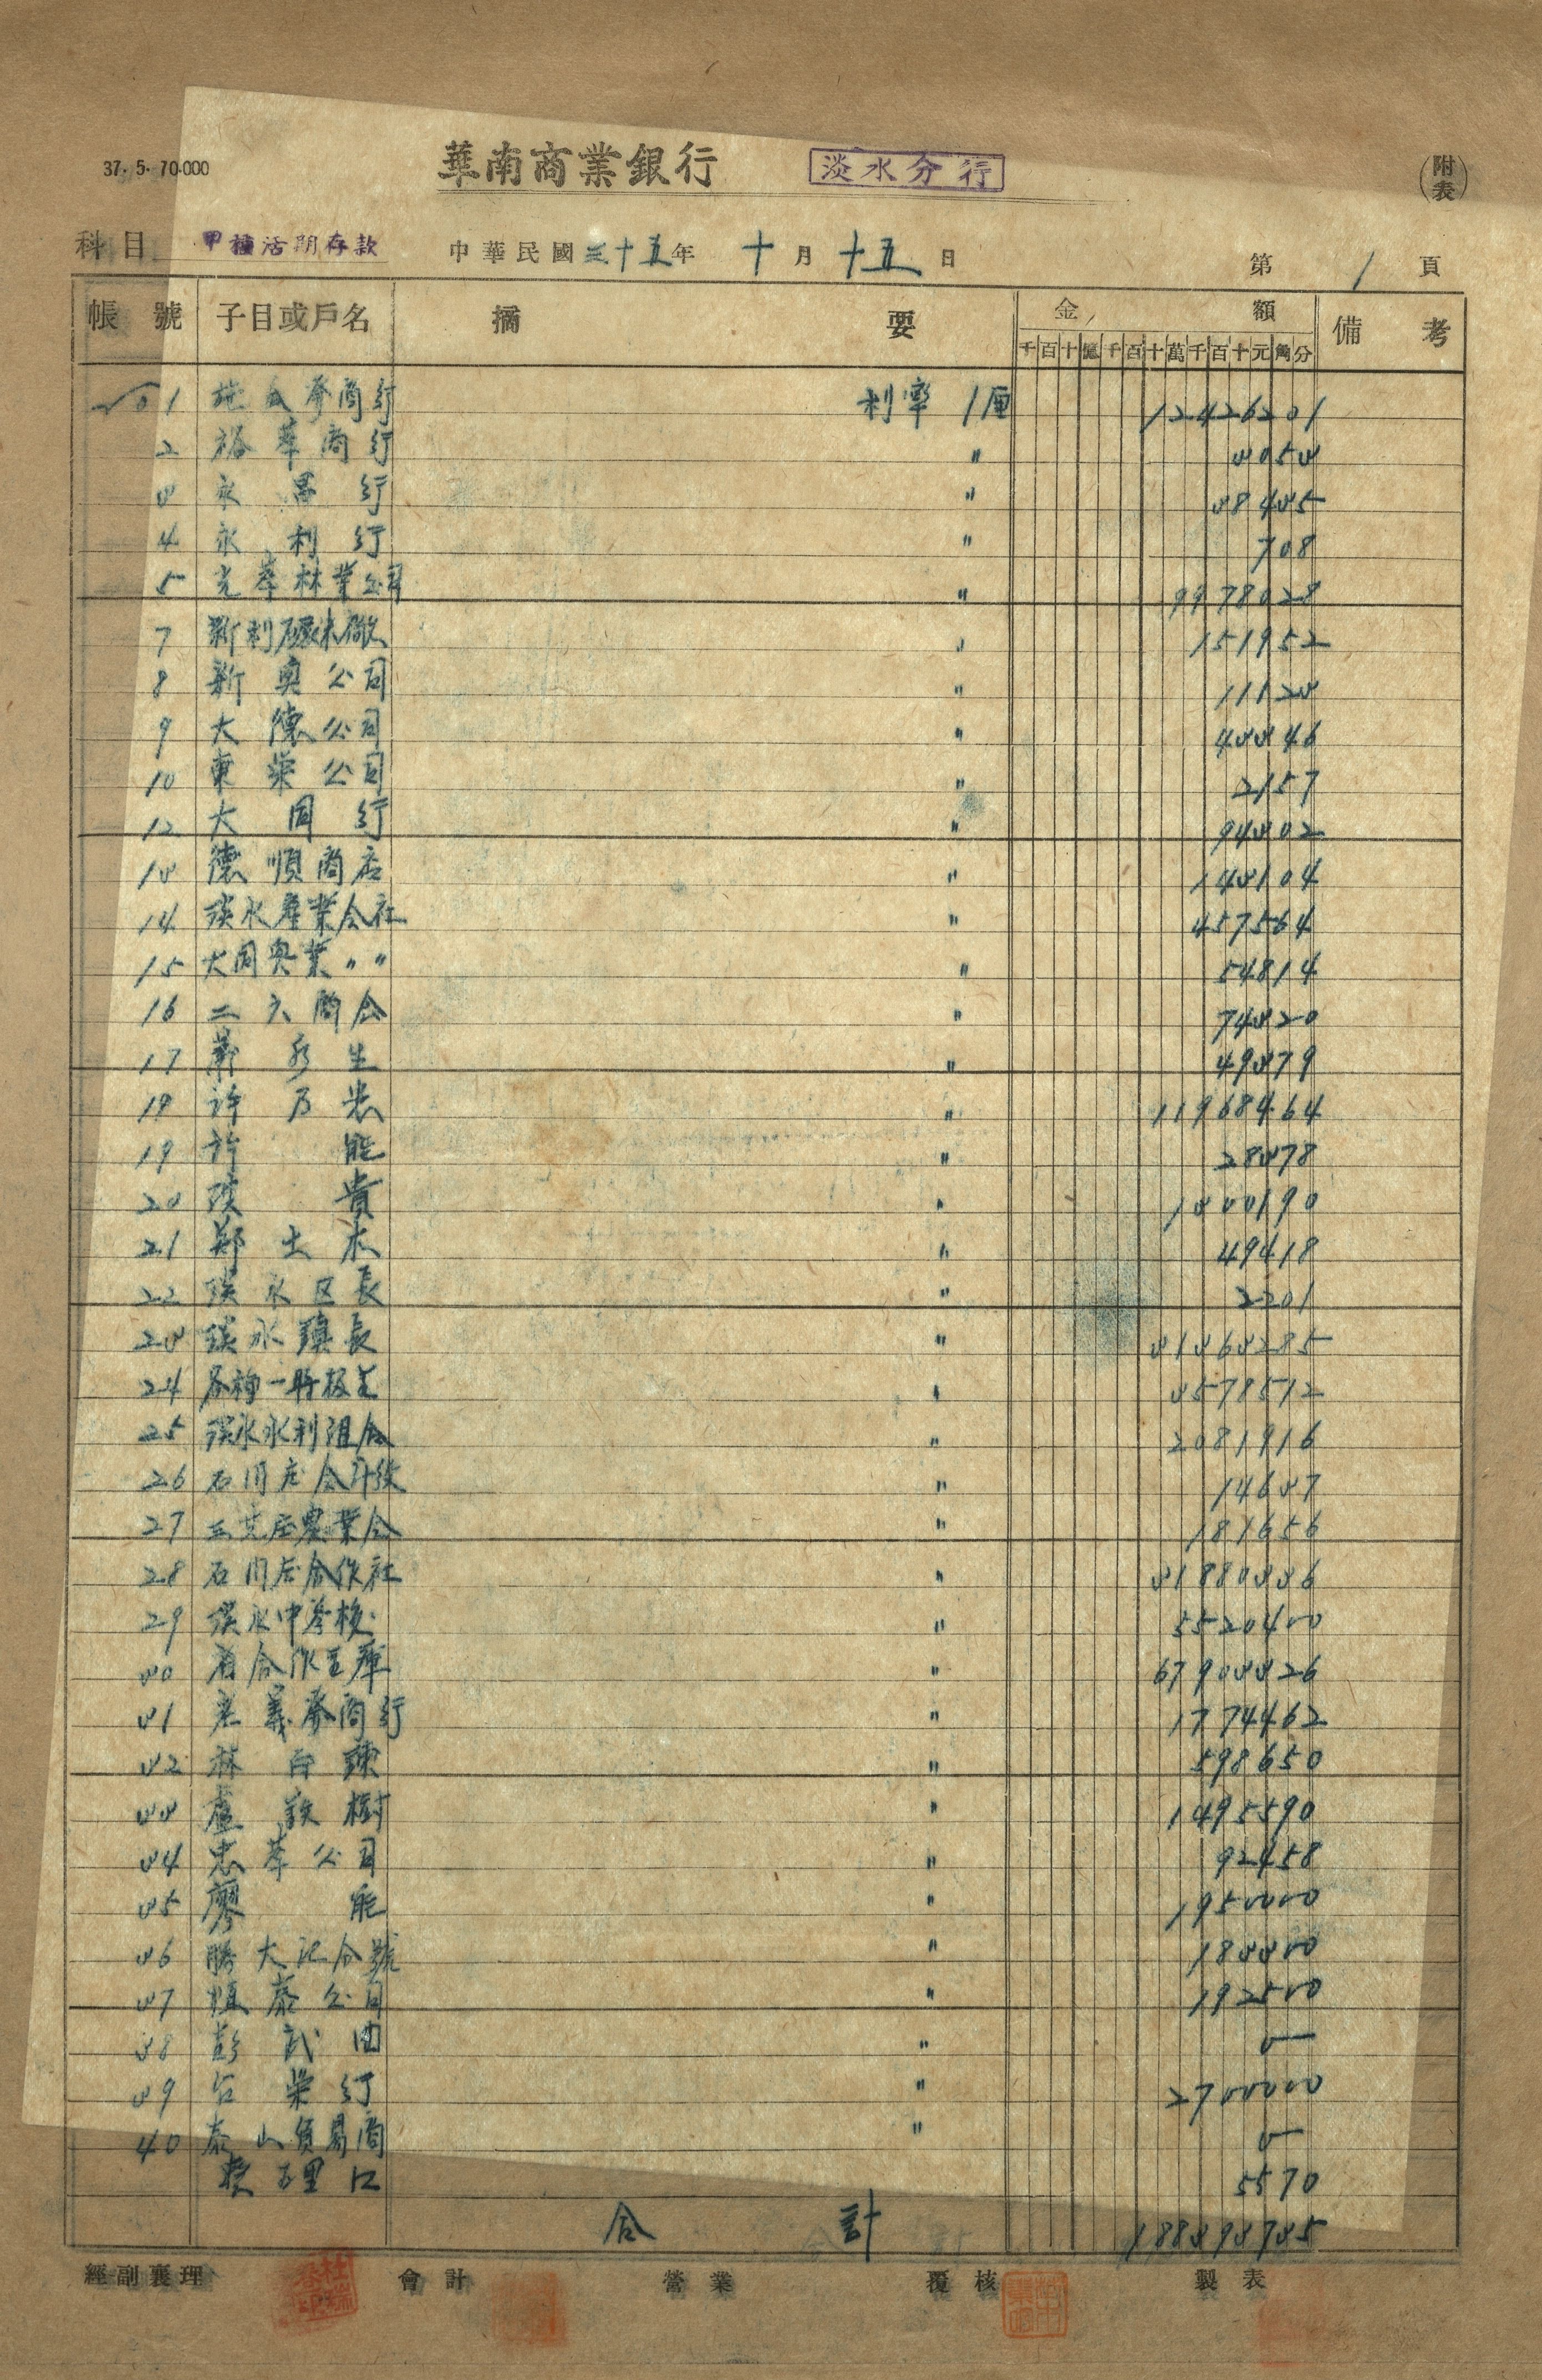 37. 5. 70.000
華南商業銀行 淡水分行 (附表)
科目 甲種活期存款 中華民國三十五年 十月十五日 第 1 頁
帳號 子目或戶名 摘要 金額 備考
千百十億千百十萬千百十元角分
01 商行 利率 1厘 12426201
2 裕華商行 〃 3053
3 永昌行 〃 38435
4 永利行 〃 708
5 光華林業公司 〃 9978028
7 新利碾米廠 〃 151952
8 新興公司 〃 11123
9 大德公司 〃 43346
10 東榮公司 〃 2157
12 大同行 〃 94302
13 德順商店 〃 143104
14 淡水產業会社 〃 457564
15 大同興業〃〃 〃 54814
16 二六商会 〃 74320
17 生 〃 49379
19 許乃 〃 11968464
19 許能 〃 28378
20 貴 〃 1300190
21 鄭土木 〃 49418
22 淡水区長 〃 2201
23 淡水鎮長 〃 31363285
24 〃 3578512
25 淡水水利組合 〃 2081916
26 石门庄会计役 〃 14637
27 三芝庄農業会 〃 181656
28 石门庄合作社 〃 31880336
29 淡水中学校 〃 5520400
30 省合作金庫 〃 67903326
31 義商行 〃 1774462
32 林 〃 598650
33 盧樹 〃 1495590
34 忠華公司 〃 92458
35 廖能 〃 1950000
36 勝大記合號 〃 183300
37 恒泰公司 〃 192500
38 彭武 〃 0
39 台榮行 〃 2700000
40 泰山貿易商 〃 0
5570
合計 188393735
經副襄理 會計 營業 覆核 製表